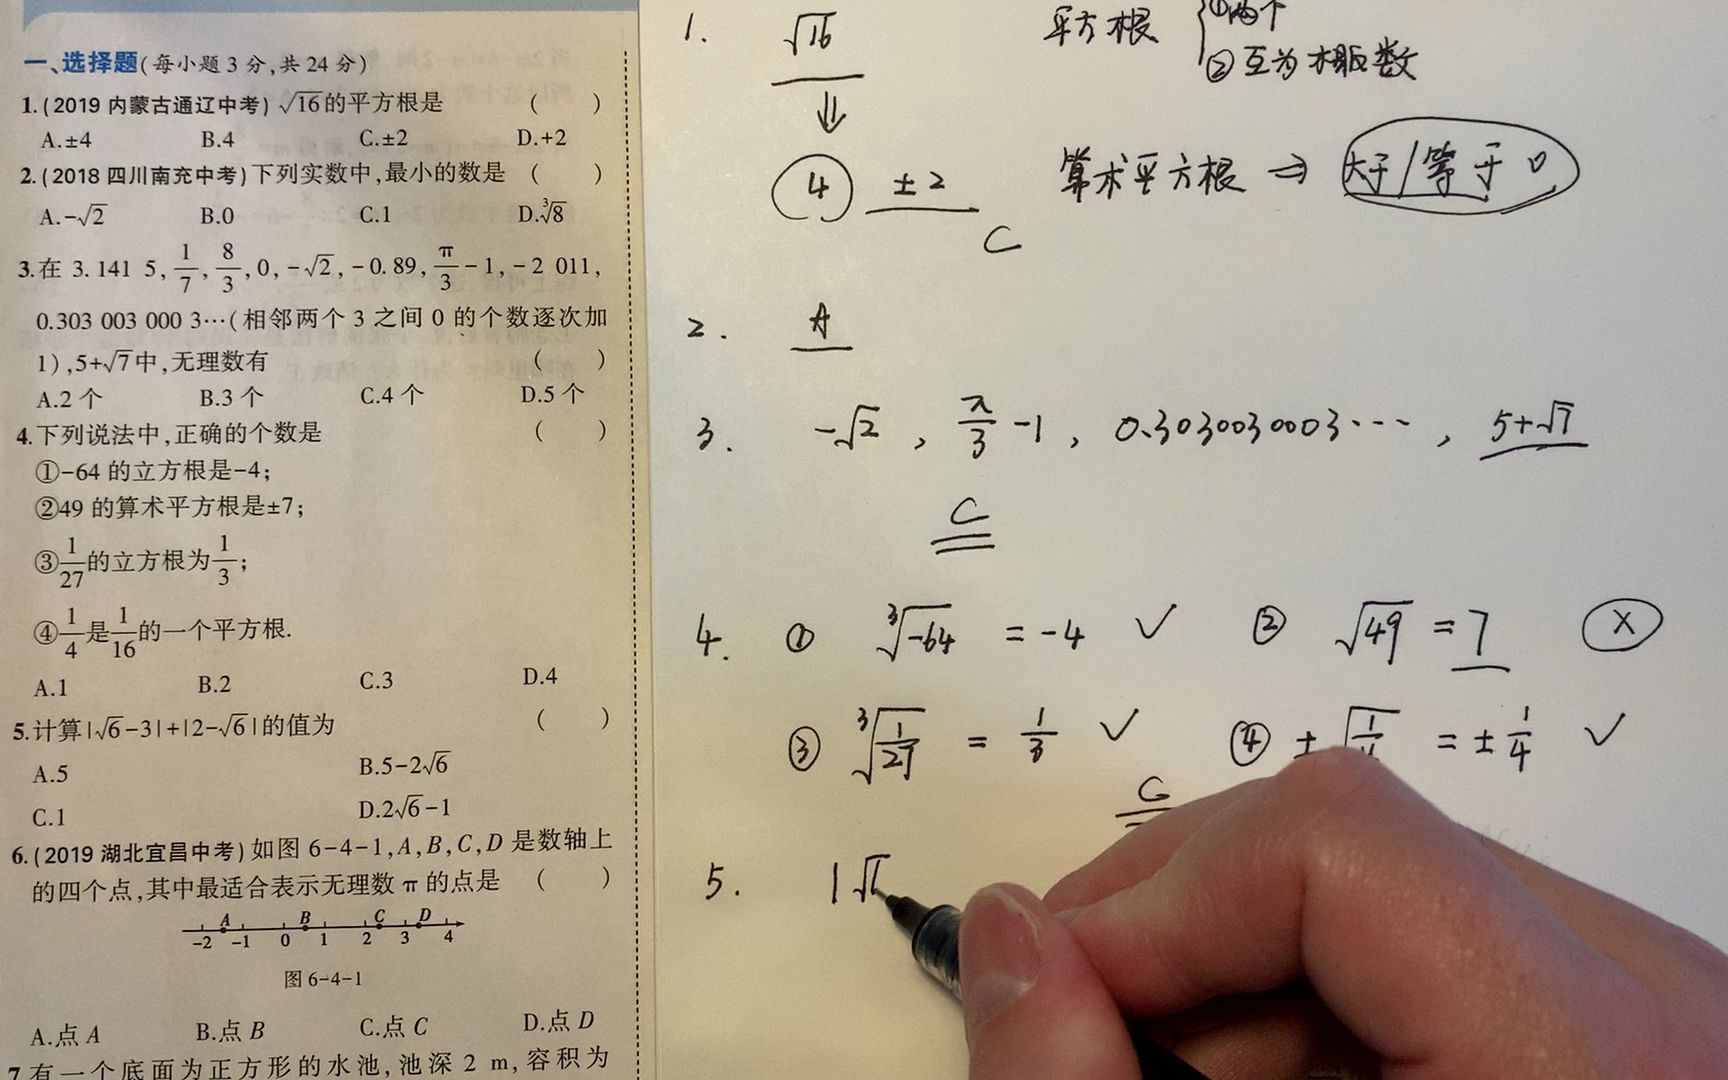 一、选择题(每小题3分,共24分)
1.(2019内蒙古通辽中考)√16的平方根是 ( )
A.±4 B.4 C.±2 D.+2
2.(2018四川南充中考)下列实数中,最小的数是 ( )
A.-√2 B.0 C.1 D.∛8
3.在 3.141 5, 1/7, 8/3, 0, -√2, -0.89, π/3-1, -2 011,
0.303 003 000 3…(相邻两个3之间0的个数逐次加
1),5+√7中,无理数有 ( )
A.2个 B.3个 C.4个 D.5个
4.下列说法中,正确的个数是 ( )
①-64的立方根是-4;
②49的算术平方根是±7;
③1/27的立方根为1/3;
④1/4是1/16的一个平方根.
A.1 B.2 C.3 D.4
5.计算|√6-3|+|2-√6|的值为 ( )
A.5 B.5-2√6
C.1 D.2√6-1
6.(2019湖北宜昌中考)如图6-4-1,A,B,C,D是数轴上
的四个点,其中最适合表示无理数π的点是 ( )
A B C D
-2 -1 0 1 2 3 4
图6-4-1
A.点A B.点B C.点C D.点D
7.有一个底面为正方形的水池,池深2 m,容积为
1. √16 平方根 ①两个
②互为相反数
4 ±2 算术平方根 ⇒ 大于/等于0
C
2. A
3. -√2, π/3-1, 0.3030030003…, 5+√7
C
4. ① ∛-64 = -4 ✓ ② √49 = 7 X
③ ∛1/27 = 1/3 ✓ ④ ±√1 = ±1/4 ✓
C
5. |√